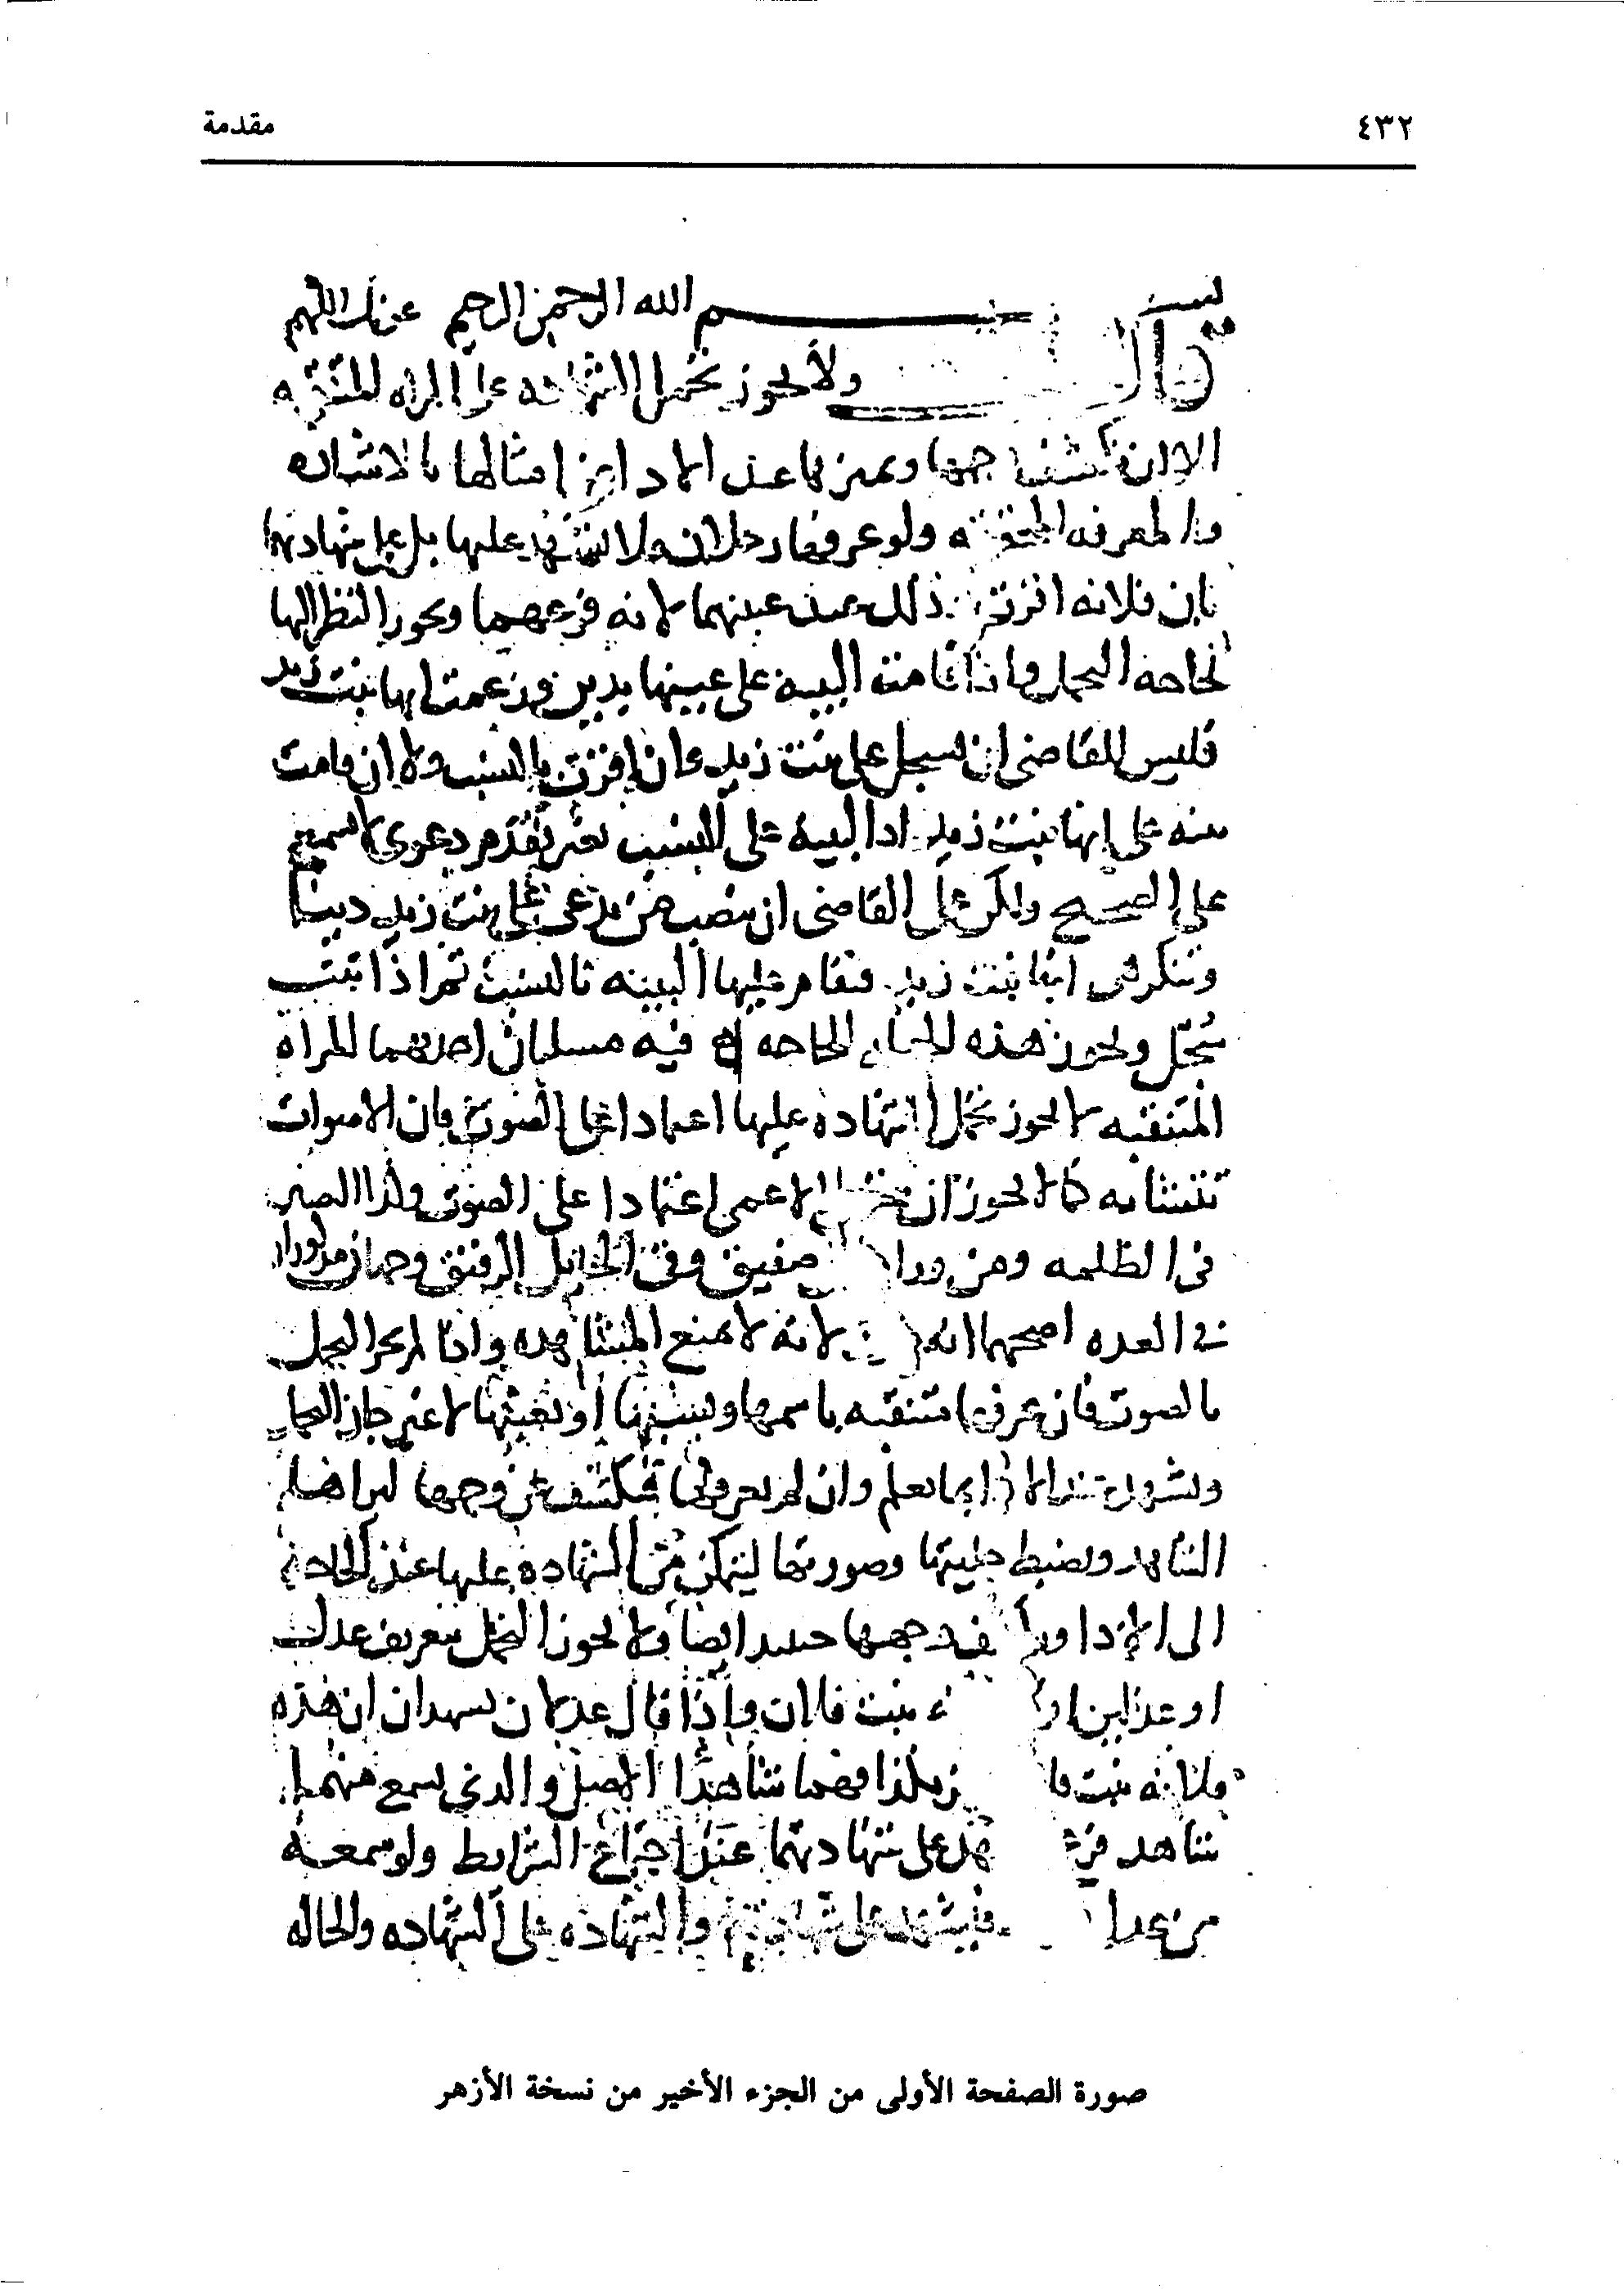 ٤٣٢ مقدمة
بسم الله الرحمن الرحيم عونك اللهم
قال ولا يجوز تحمل الشهادة على المراه المتنقبه
الا ان تكشف وجهها ويميزها عند الاداء عن امثالها بالاشاره
والمعرفه المحققه ولو عرفها رجلان فلا يشهد عليها بل على شهادتهما
بان فلانه اقرت ذلك عند غيبتهما لانه فرعهما ويجوز النظر اليها
لحاجه التحمل واذا قامت البينه على عينها بدين وزعمت انها بنت زيد
فليس للقاضي ان يسجل على بنت زيد وان اقرت بالنسب ولا ان قامت
بينه على انها بنت زيد اذ البينه على النسب بغير تقدم دعوى لا تسمع
على الصحيح ولكن على القاضي ان ينصب من يدعي على بنت زيد دينا
وتنكر هي انها بنت زيد فتقام عليها البينه بالنسب ثم اذا ثبت
سجل ويجوز هذه الحيله للحاجه فيه مسلتان احدهما المراه
المتنقبه لا يجوز تحمل الشهاده عليها اعتمادا على الصوت فان الاصوات
تتشابه كما لا يجوز ان الاعمى اعتمادا على الصوت وكذا البصير
في الظلمه ومن ورا صفيق وفي الحايل الرقيق وجهان مذكوران
في العده اصحهما انه لانه لا يمنع المشاهده واذا لم يجز التحمل
بالصوت فان عرفها متنقبه باسمها ونسبها او بعينها لا غير جاز التحمل
ويشهد عند الاداء بما يعلم وان لم يعرفها فتكشف عن وجهها ليراها
الشاهد ويضبط حليتها وصورتها ليتمكن من الشهاده عليها عند الحاجه
الى الاداء وجهها حينئذ ايضا ولا يجوز التحمل بتعريف عدل
او عدلين بنت فلان واذا قال عدلان يشهدان ان هذه
فلانه بنت بكذا فهما شاهدا الاصل والذي يسمع منهما
شاهد على شهادتهما عند اجتماع الشرايط ولو سمعه
من عدل فيشهد على شهادته والشهاده على الشهاده والحاله
صورة الصفحة الأولى من الجزء الأخير من نسخة الأزهر